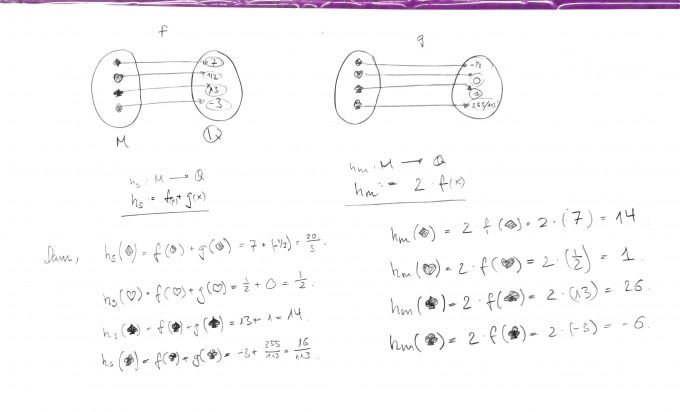 f
g
7
1/2
13
-3
-1/3
0
1
355/113
M
Q
hs : M → Q
hs = f(x) + g(x)
hm : M → Q
hm := 2 · f(x)
hs(♦) = f(♦) + g(♦) = 7 + (-1/3) = 20/3.
hs(♡) = f(♡) + g(♡) = 1/2 + 0 = 1/2.
hs(♠) = f(♠) + g(♠) = 13 + 1 = 14.
hs(♣) = f(♣) + g(♣) = -3 + 355/113 = 16/113.
hm(♦) = 2 · f(♦) = 2 · (7) = 14.
hm(♡) = 2 · f(♡) = 2 · (1/2) = 1.
hm(♠) = 2 · f(♠) = 2 · (13) = 26.
hm(♣) = 2 · f(♣) = 2 · (-3) = -6.